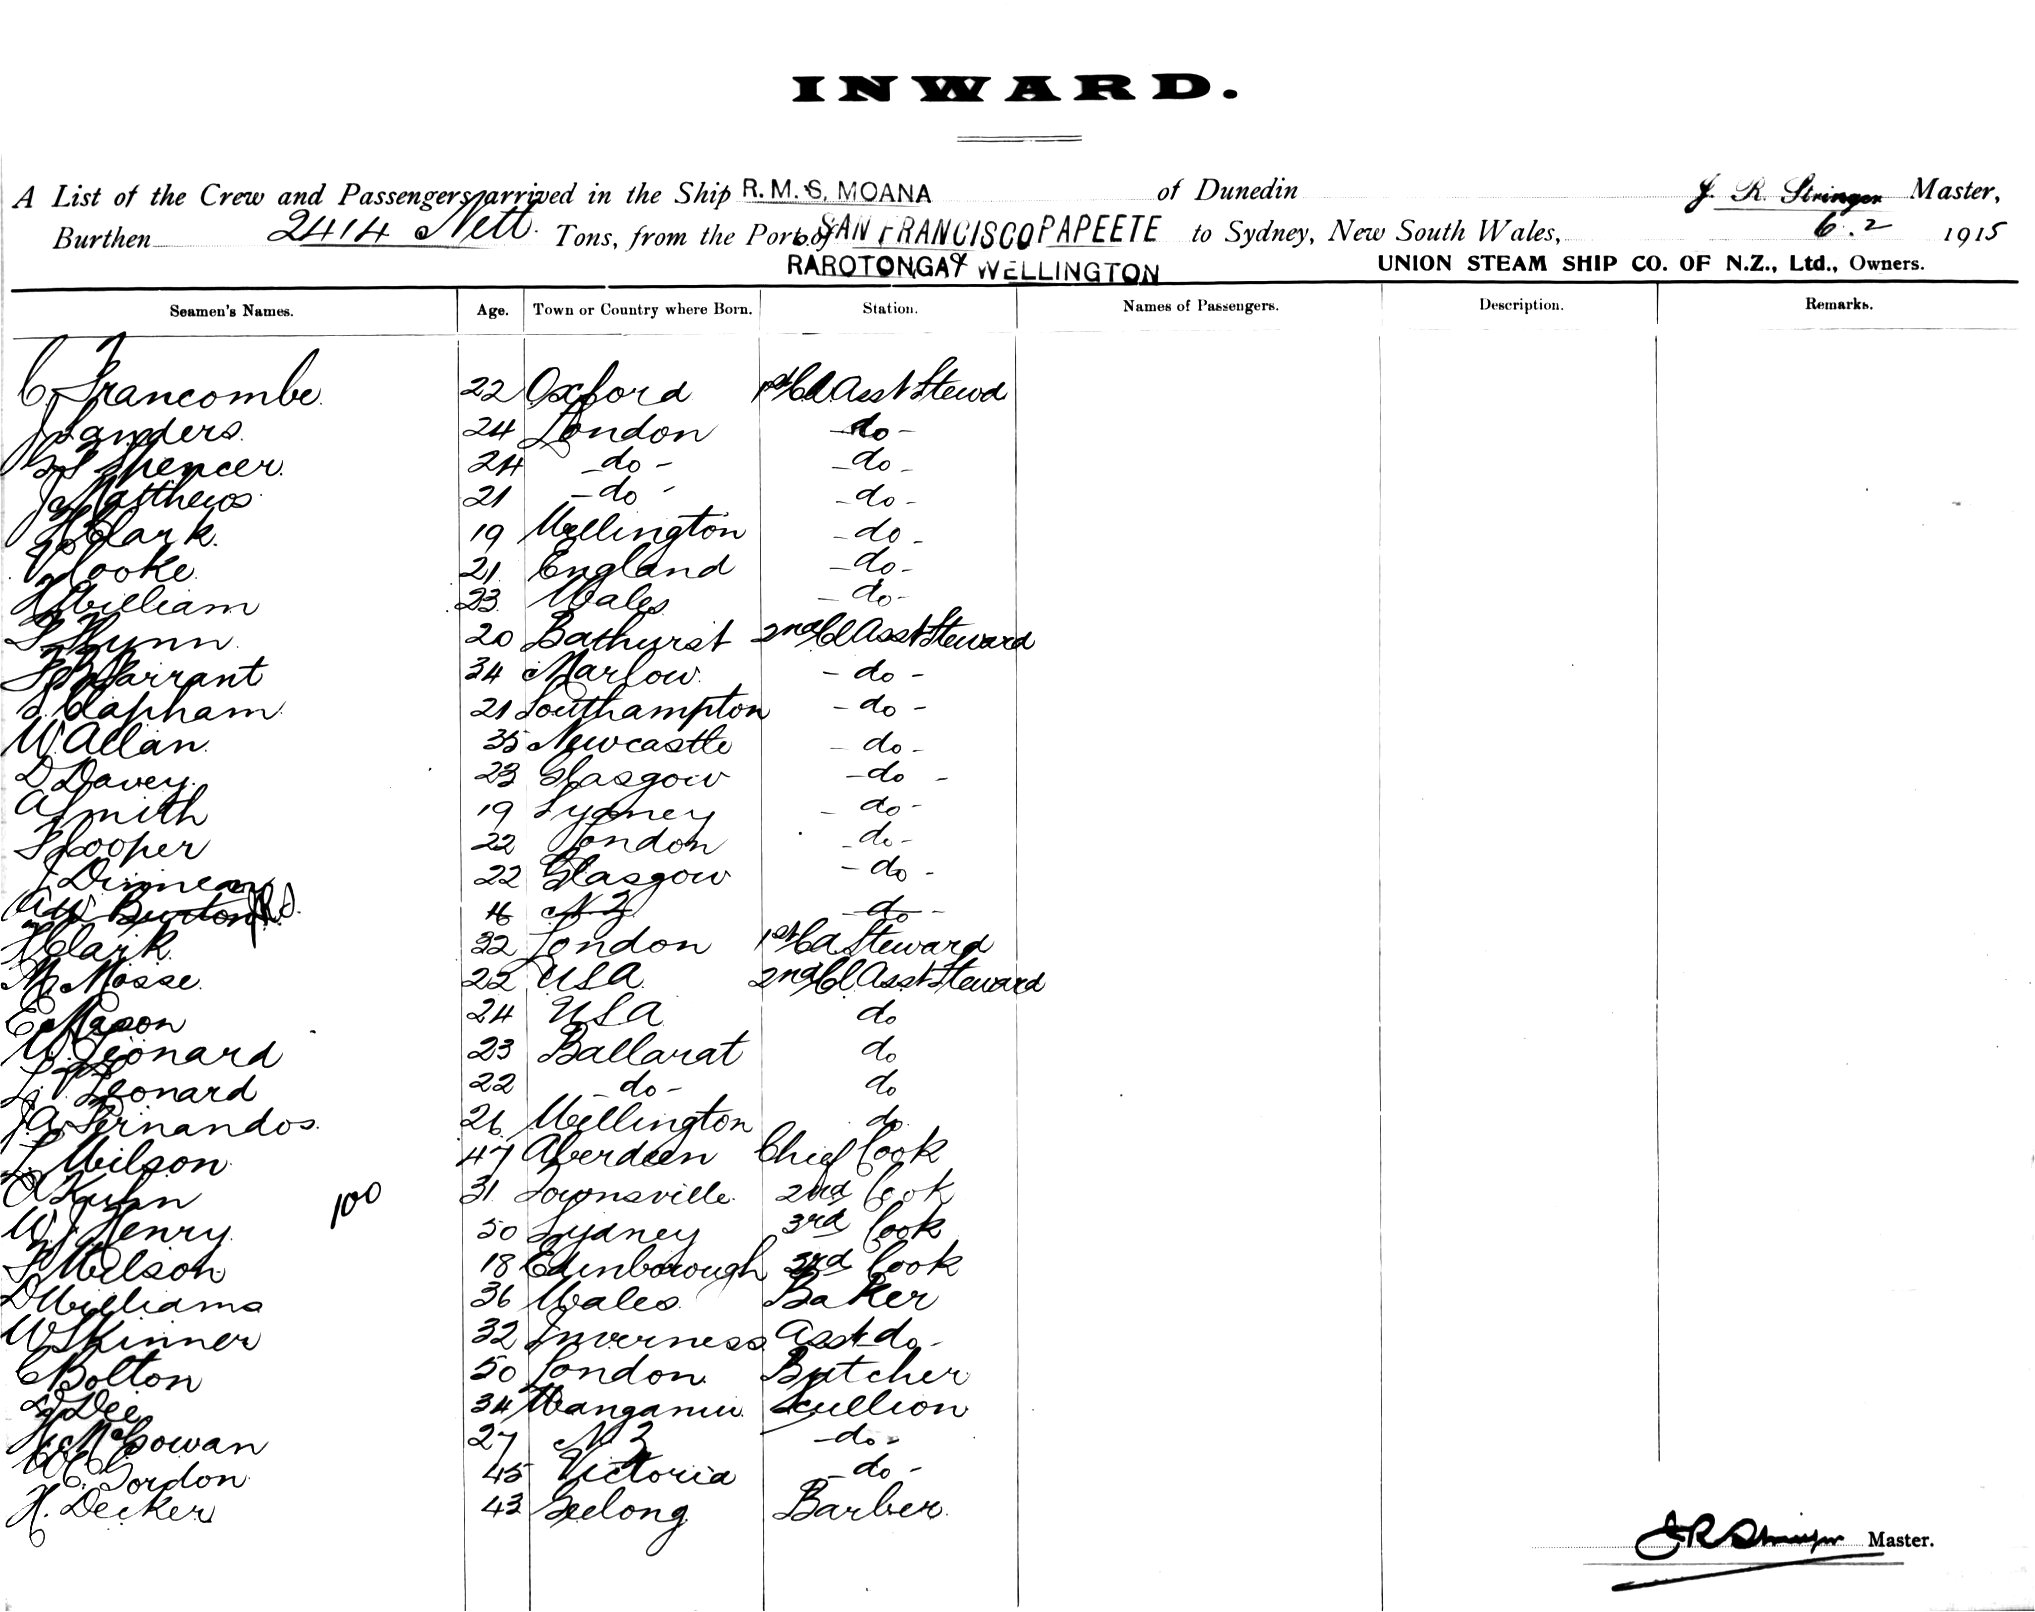 INWARD.
A List of the Crew and Passengers arrived in the Ship R.M.S. MOANA of Dunedin J. R. Stringer Master,
Burthen 2414 Nett. Tons, from the Port of SAN FRANCISCO PAPEETE to Sydney, New South Wales, 6.2 1915
RAROTONGA & WELLINGTON UNION STEAM SHIP CO. OF N.Z., Ltd., Owners.
Seamen's Names. Age. Town or Country where Born. Station. Names of Passengers. Description. Remarks.
C Francombe. 22 Oxford 1st Cl Asst Stewd
J Sanders. 24 London - do -
Spencer. 24 - do - - do -
J Matthews 21 - do - - do -
Clark. 19 Wellington - do -
Cooke. 21 England - do -
William 23 Wales - do -
Flynn. 20 Bathurst 2nd Cl Asst Steward
Warrant 34 Marlow. - do -
Clapham. 21 Southampton - do -
W. Allan. 35 Newcastle - do -
D Davey. 23 Glasgow - do -
A Smith 19 Sydney - do -
F Cooper 22 London - do -
J Dinnean 22 Glasgow - do -
Burton N Z - do -
H Clark. 32 London 1st Cl Steward
M Masse. 22 USA. 2nd Cl Asst Steward
E Mason 24 USA do
W. Leonard 23 Ballarat do
L. Leonard 22 - do - do
J.A. Fernandos. 26 Wellington do.
L. Wilson 47 Aberdeen Chief Cook
A Kuhn 100 31. Townsville. 2nd Cook
W J Henry. 50 Sydney 3rd Cook
F Wilson 18 Edinborough 3rd Cook
D Williams 36 Wales. Baker
W Skinner 32 Inverness. Asst do -
C Bolton 50 London. Butcher
Dee 34 Wanganui. Scullion
McGowan 27 N Z - do -
C. Gordon. 45 Victoria - do -
H. Decker 43 Geelong. Barber.
J R Stringer Master.